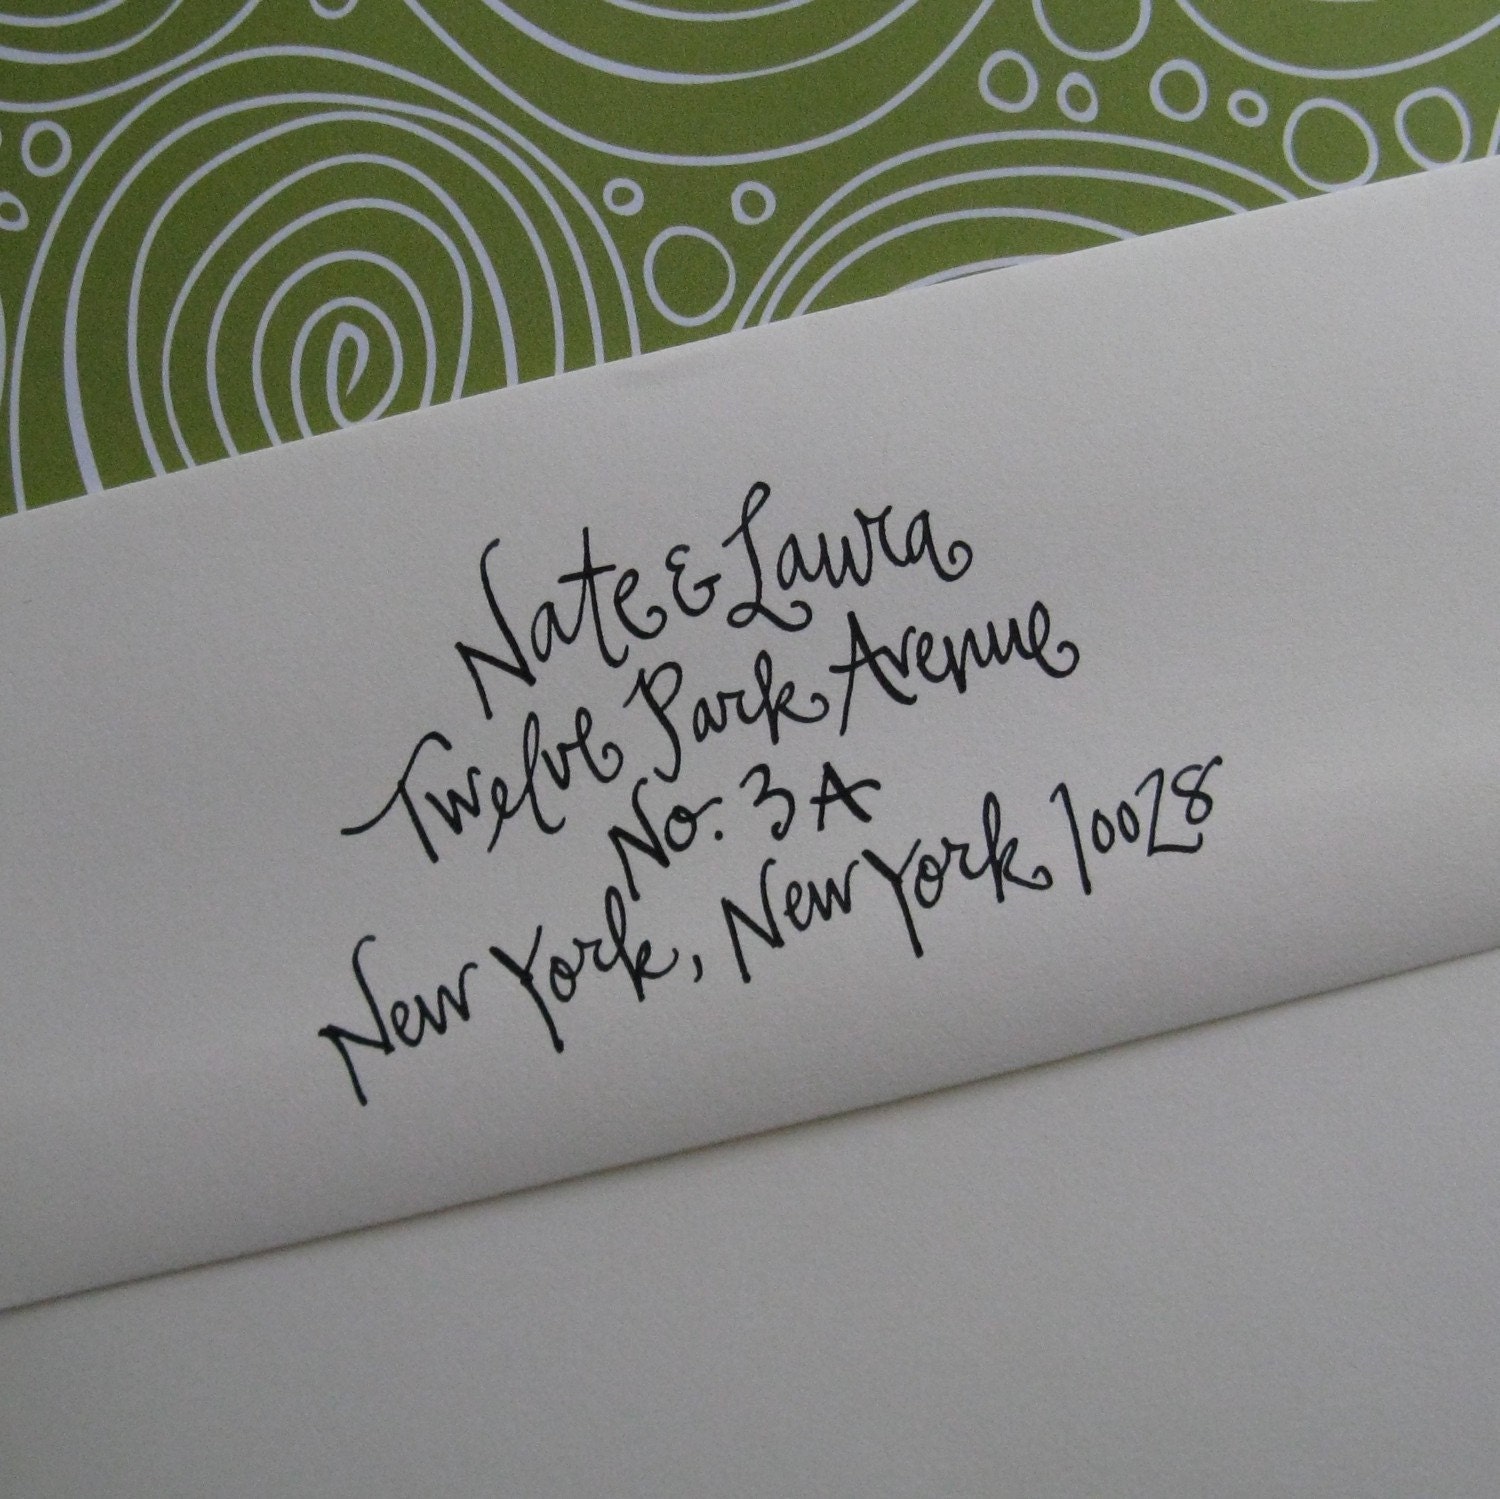 Nate & Laura
Twelve Park Avenue
No. 3A
New York, New York 10028